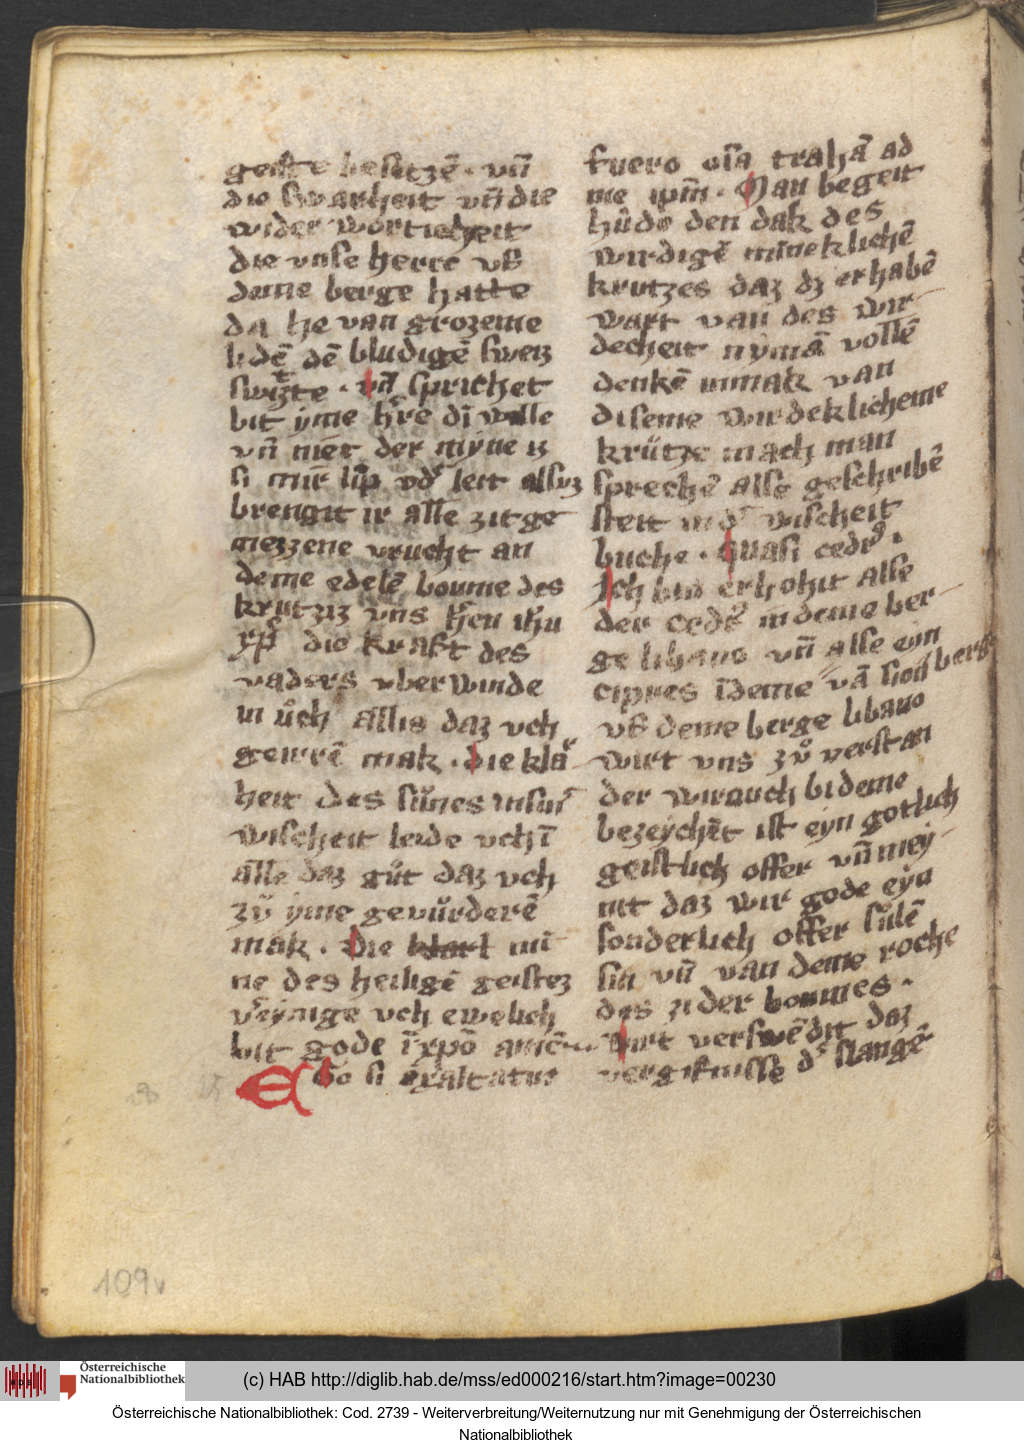 geiste besitzē · vñ
die swarheit vñ die
wider worticheit
die vnse herre vf
deme berge hatte
da he van grozeme
lidē dē bludigē sweiz
switzte · vñ sprichet
bit yme hˀre dī wille
vñ niet der myne iz
si mir lip vdˀ leit alsuz
brengit ir alle zitge
mezzene vrucht an
deme edelē boume des
krutziz vñs hˀren ihu
xp̄i die kraft des
vaders vber winde
in uͦch allis daz vch
gewrē mak · die klaˀ
heit des suͦnes in sinˀ
wischeit leide vch ī
alle daz guͦt daz vch
zuͦ yme gevuͦrderē
mak · Die klarl mī
ne des heiligē geistez
vˀeynige vch ewelich
bit gode ī xpō amē
EGo si exaltatus
fuero oīa trahā ad
me ipm̄ · Man begeit
huͦde den dak des
wirdigē mīneklichē
krutzes daz dz erhabē
wart van des wir
decheit nymā vollē
denkē inmak van
diseme wirdeklicheme
kruͦtze mach man
sprechē alse geschribē
steit in dˀ wischeit
buche · Quasi cedrꝰ ·
Ich bin erhohit alse
der cedˀ in deme ber
ge libano vñ alse ein
cipres īdeme vā sion berge
vf deme berge libano
wirt vns zuͦ verstan
der wirauch bi deme
bezeychēt ist eyn gotlich
geistlich offer vñ mey
nit daz wir gode eyn
sonderlich offer suͦlē
sin vñ van deme roche
des zider boumes ·
Wirt verswēdit daz
vergifnisse dˀ slangē
109v
(c) HAB http://diglib.hab.de/mss/ed000216/start.htm?image=00230
Österreichische
Nationalbibliothek
Österreichische Nationalbibliothek: Cod. 2739 - Weiterverbreitung/Weiternutzung nur mit Genehmigung der Österreichischen
Nationalbibliothek